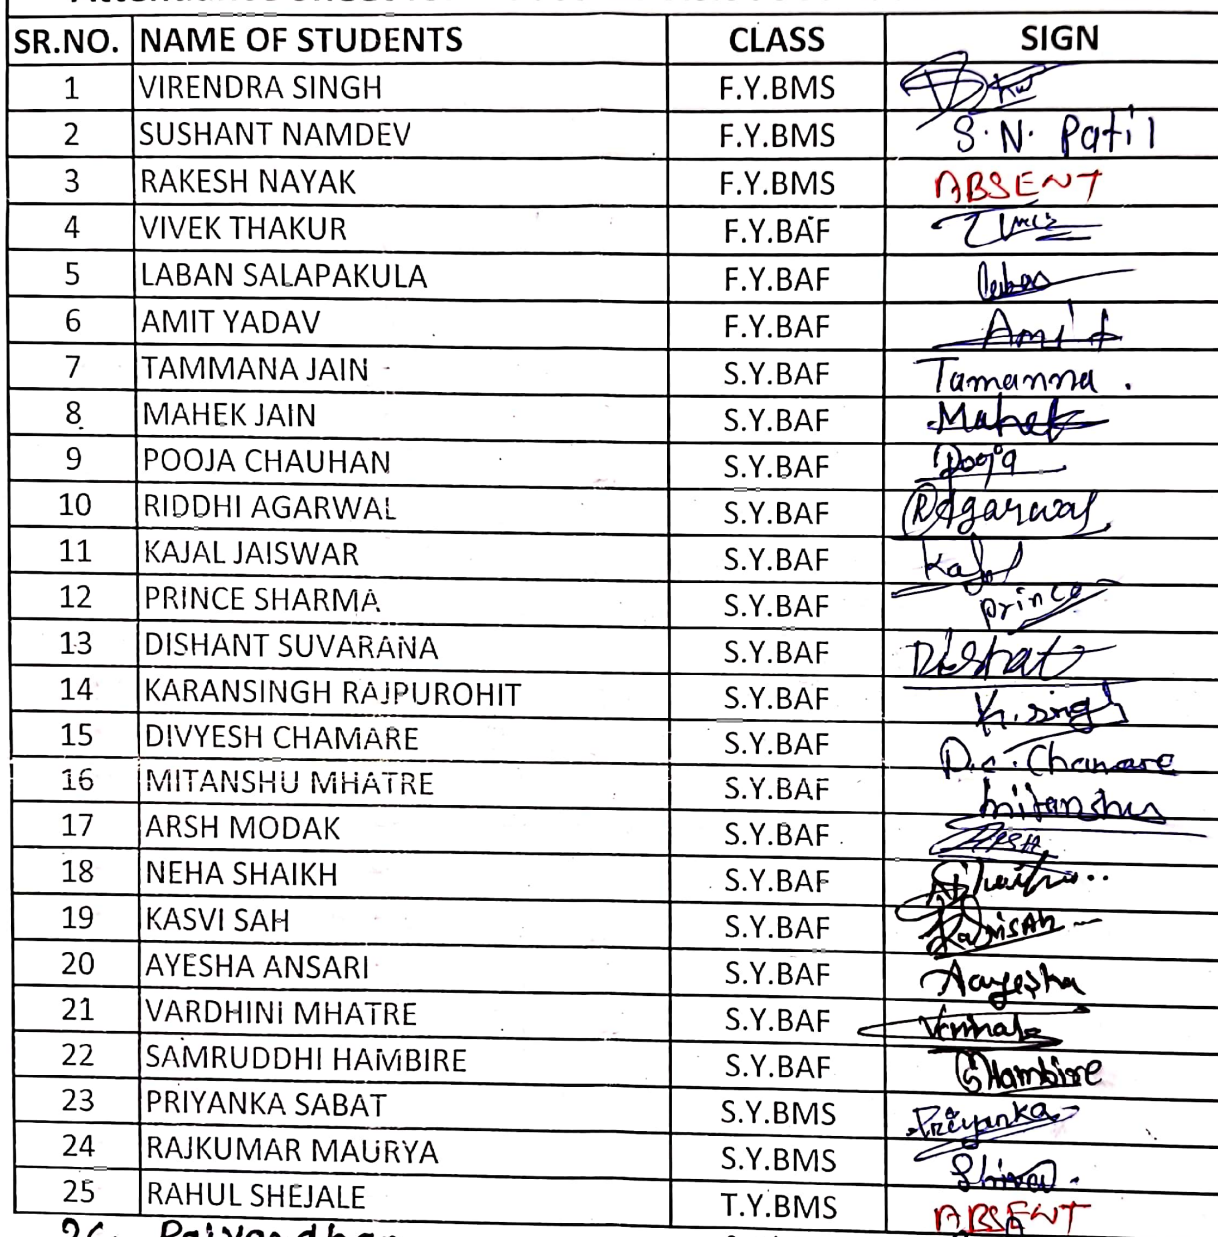 SR.NO. NAME OF STUDENTS CLASS SIGN
1 VIRENDRA SINGH F.Y.BMS
2 SUSHANT NAMDEV F.Y.BMS S.N. Patil
3 RAKESH NAYAK F.Y.BMS ABSENT
4 VIVEK THAKUR F.Y.BAF
5 LABAN SALAPAKULA F.Y.BAF
6 AMIT YADAV F.Y.BAF Amit
7 TAMMANA JAIN S.Y.BAF Tamanna .
8 MAHEK JAIN S.Y.BAF Mahek
9 POOJA CHAUHAN S.Y.BAF Pooja
10 RIDDHI AGARWAL S.Y.BAF RAgarwal
11 KAJAL JAISWAR S.Y.BAF Kajal
12 PRINCE SHARMA S.Y.BAF prince
13 DISHANT SUVARANA S.Y.BAF
14 KARANSINGH RAJPUROHIT S.Y.BAF K.singh
15 DIVYESH CHAMARE S.Y.BAF D.c.Chamare
16 MITANSHU MHATRE S.Y.BAF mitanshu
17 ARSH MODAK S.Y.BAF ARSH
18 NEHA SHAIKH S.Y.BAF
19 KASVI SAH S.Y.BAF
20 AYESHA ANSARI S.Y.BAF Aayesha
21 VARDHINI MHATRE S.Y.BAF
22 SAMRUDDHI HAMBIRE S.Y.BAF SHambire
23 PRIYANKA SABAT S.Y.BMS Priyanka
24 RAJKUMAR MAURYA S.Y.BMS
25 RAHUL SHEJALE T.Y.BMS ABSENT
26.